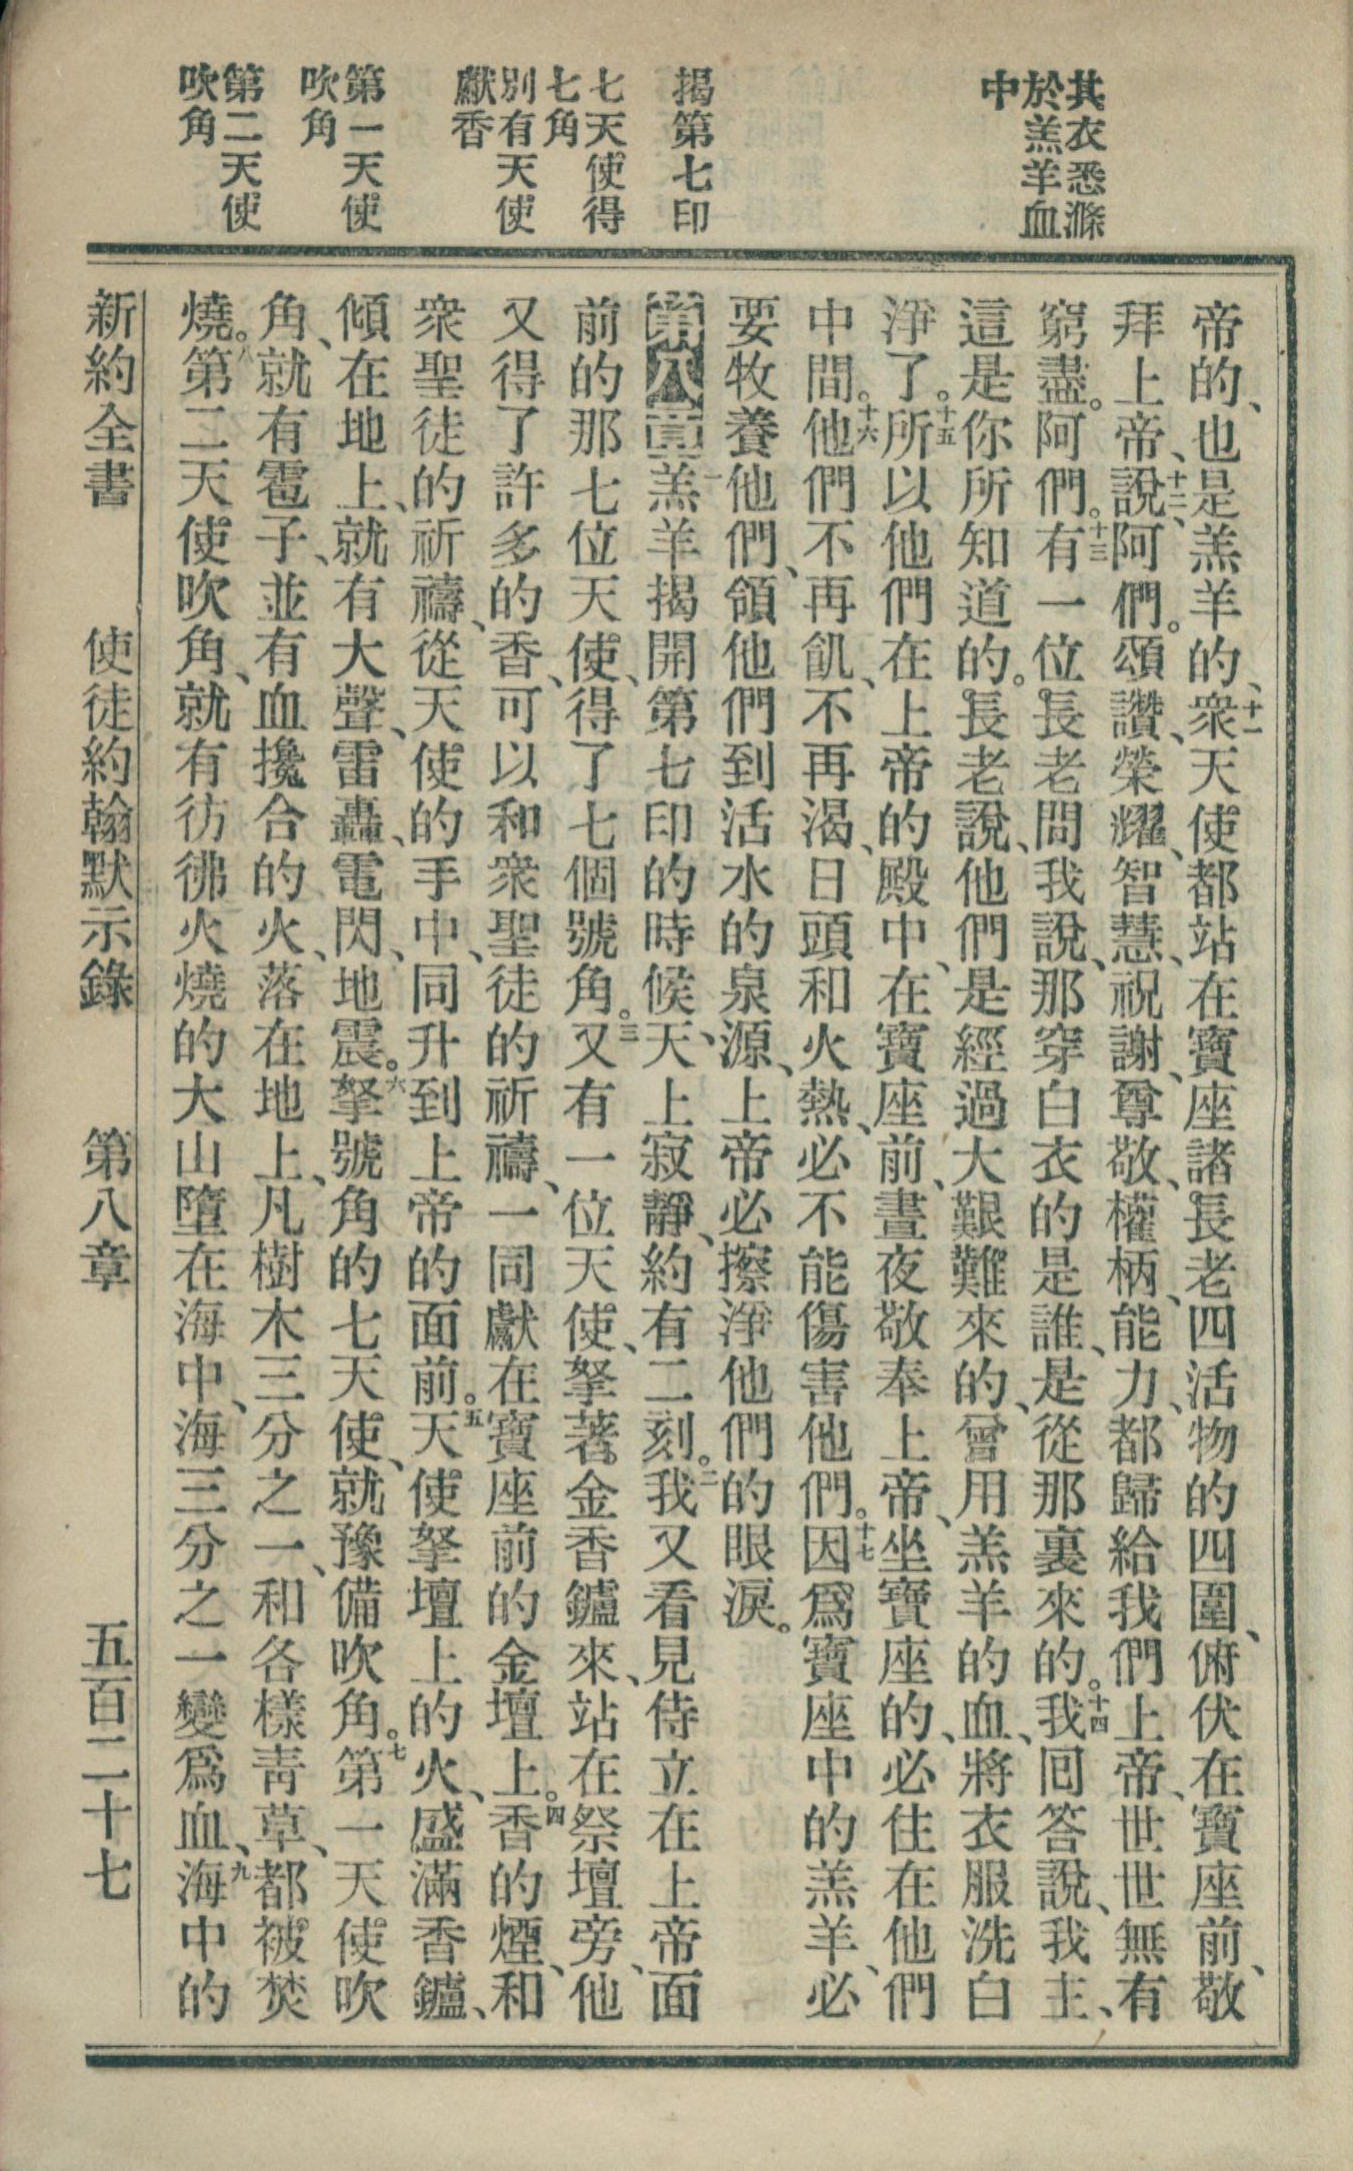 其衣悉滌
於羔羊血
中
揭第七印
七天使得
七角
別有天使
獻香
第一天使
吹角
第二天使
吹角
帝的、也是羔羊的、十一衆天使都站在寶座諸長老四活物的四圍、俯伏在寶座前、敬
拜上帝、十二說、阿們。頌讚、榮耀、智慧、祝謝、尊敬、權柄、能力、都歸給我們上帝、世世無有
窮盡。阿們。十三有一位長老問我說、那穿白衣的是誰、是從那裏來的。十四我回答說、我主、
這是你所知道的。長老說、他們是經過大艱難來的、曾用羔羊的血、將衣服洗白
淨了。十五所以他們在上帝的殿中、在寶座前、晝夜敬奉上帝、坐寶座的、必住在他們
中間。十六他們不再飢、不再渴、日頭和火熱、必不能傷害他們。十七因爲寶座中的羔羊、必
要牧養他們、領他們到活水的泉源、上帝必擦淨他們的眼淚。
第八章一羔羊揭開第七印的時候、天上寂靜、約有二刻。二我又看見侍立在上帝面
前的那七位天使、得了七個號角。三又有一位天使、拏著金香鑪來、站在祭壇旁、他
又得了許多的香、可以和衆聖徒的祈禱、一同獻在寶座前的金壇上。四香的煙、和
衆聖徒的祈禱、從天使的手中、同升到上帝的面前。五天使拏壇上的火、盛滿香鑪、
傾在地上、就有大聲、雷轟、電閃、地震。六拏號角的七天使、就豫備吹角。七第一天使吹
角、就有雹子、並有血攙合的火、落在地上、凡樹木三分之一、和各樣靑草、都被焚
燒。八第二天使吹角、就有彷彿火燒的大山墮在海中、海三分之一變爲血、九海中的
新約全書　使徒約翰默示錄　第八章　五百二十七